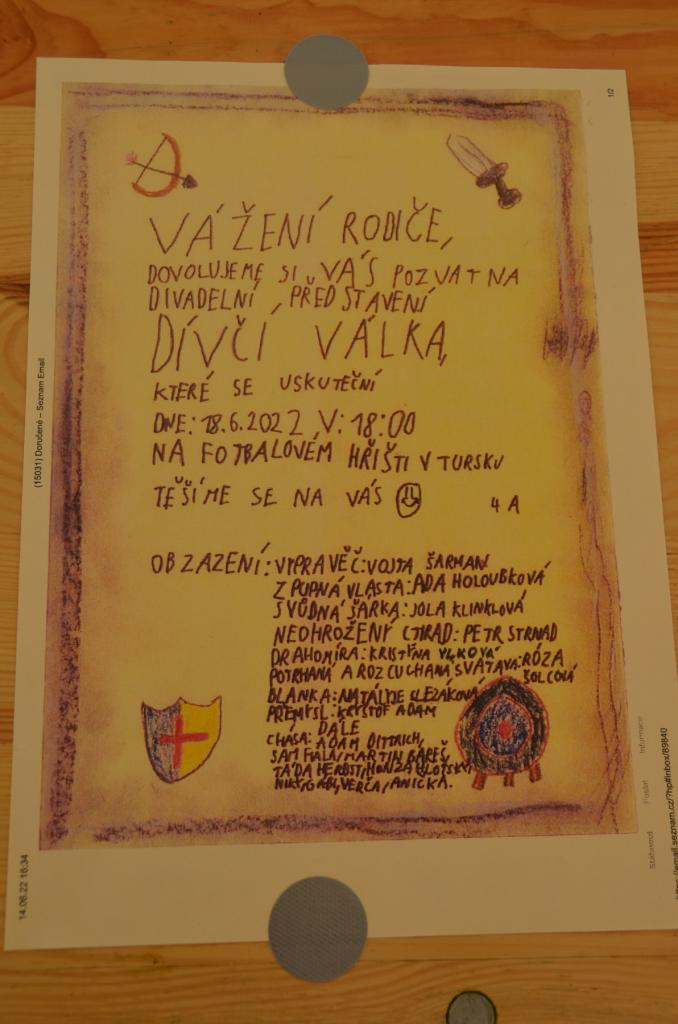 1/2
VÁŽENÍ RODIČE,
DOVOLUJEME SI VÁS POZVAT NA
DIVADELNÍ PŘEDSTAVENÍ
DÍVČÍ VÁLKA,
KTERÉ SE USKUTEČNÍ
DNE: 18.6.2022 V: 18:00
NA FOTBALOVÉM HŘIŠTI V TURSKU
TEŠÍME SE NA VÁS
4 A
OBZAZENÍ: VYPRAVĚČ: VOJTA ŠARMAN
ZPUPNÁ VLASTA: ADA HOLOUBKOVÁ
SVŮDNÁ ŠÁRKA: JOLA KLINKLOVÁ
NEOHROŽENÝ CTIRAD: PETR STRNAD
DRAHOMÍRA: KRISTÝNA VLKOVÁ
POTRHANÁ A ROZCUCHANÁ SVATAVA: RÓZA
ŠOLCOVÁ
BLANKA: NATÁLIE SLEZÁKOVÁ
PŘEMYSL: KRYŠTOF ADAM
DÁLE
CHASA: ADAM DITTRICH,
SAM FIALA, MARTIN BAREŠ,
TÁĎA HERBST, HONZA
VERČA, ANIČKA.
(15031) Doručené – Seznam Email
14.06.22 16:34
Stáhnout
Poslat
Informace
email.seznam.cz/?hp#inbox/89840